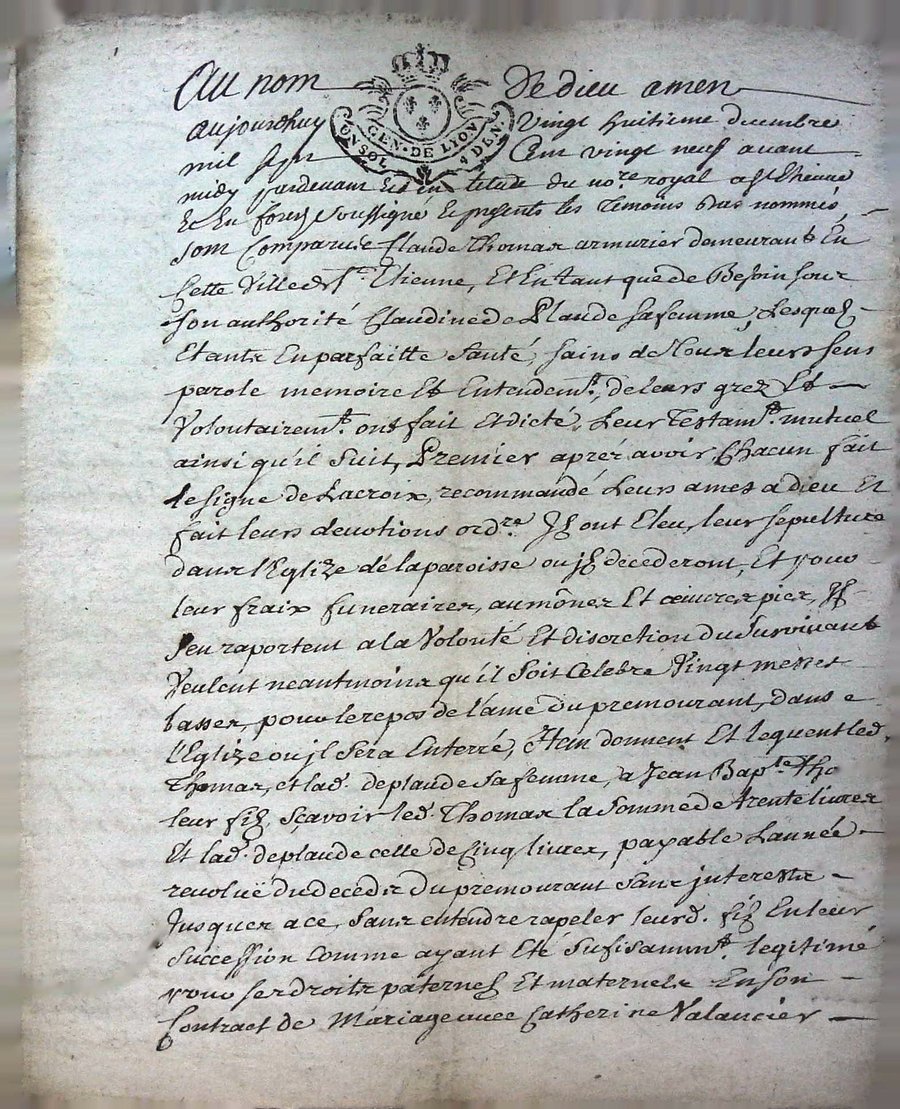 Au nom De dieu amen
aujourdhuy Vingt huitieme decembre
GEN. DE LYON
UN SOL 4 DEN.
mil sept Cent vingt neuf avant
midy pardevant Et en letude du no.re royal a st Etienne
Et En forez soussigné Et presents les Temoins bas nommés
sont Comparu Claude Thomas armurier demeurant En
cette Ville de st Etienne, Et En tant que de Besoin sous
son authorité Claudine de Plaude sa femme, Lesquels
Etants En parfaitte Santé, sains de Tous leurs sens
parole memoire Et Entendem.t, de leurs grez Et
Volontairem.t ont fait Et dicté, Leur Testam.t mutuel
ainsi qu'il suit, Premier aprés avoir Chacun fait
le signe de Lacroix, recommandé Leurs ames a dieu Et
fait leurs devotions ord.re Ils ont Eleu leur sepulture
dans l'Eglize de la paroisse ou jls decederont, Et pour
leur fraix funeraires, aumônes Et œuvres pies, Ils
s'en raportent a la Volonté Et discretion du Survivant
Veulent neantmoins qu'il soit Celebré Vingt messes
basses, pour le repos de l'ame du premourant, dans
l'Eglize ou jl sera Enterré, Item donnent Et leguent led.
Thomas, et lad. deplaude sa femme, a Jean Bap.te Tho
leur fils, sçavoir led. Thomas la somme de trente livres
Et lad. deplaude celle de Cinq livres, payable Lannée
revoluë du decedz du premourant sans jnterests
Jusques a ce, sans entendre rapeler leurd. fils En leur
succession comme ayant Eté sufisamm.t legitimé
pour ses droits paternels Et maternels En son
Contract de Mariage avec Catherine Valancier